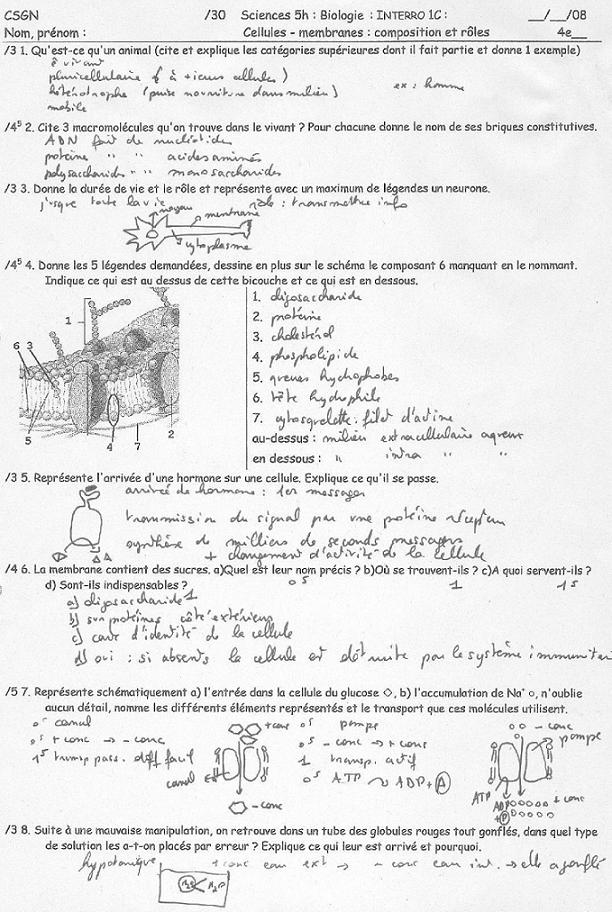 CSGN /30 Sciences 5h : Biologie : INTERRO 1C : __/__/08
Nom, prénom : Cellules - membranes : composition et rôles 4e__
/3 1. Qu'est-ce qu'un animal (cite et explique les catégories supérieures dont il fait partie et donne 1 exemple)
ê vivant
pluricellulaire (à +ieurs cellules)
hétérotrophe (puise nourriture dans milieu) ex : homme
mobile
/4⁵ 2. Cite 3 macromolécules qu'on trouve dans le vivant ? Pour chacune donne le nom de ses briques constitutives.
ADN fait de nucléotides
protéine " " acides aminés
polysaccharides " " monosaccharides
/3 3. Donne la durée de vie et le rôle et représente avec un maximum de légendes un neurone.
jusque toute la vie rôle : transmettre info
noyau
membrane
cytoplasme
/4⁵ 4. Donne les 5 légendes demandées, dessine en plus sur le schéma le composant 6 manquant en le nommant.
Indique ce qui est au dessus de cette bicouche et ce qui est en dessous.
1
6 3
5
4
7
2
1. oligosaccharide
2. protéine
3. cholestérol
4. phospholipide
5. queues hydrophobes
6. tête hydrophile
7. cytosquelette : filet d'actine
au-dessus : milieu extracellulaire aqueux
en dessous : " intra " "
/3 5. Représente l'arrivée d'une hormone sur une cellule. Explique ce qu'il se passe.
arrivée de hormone : 1er messager
transmission du signal par une protéine récepteur
synthèse de milliers de seconds messagers
+ changement d'activité de la cellule
/4 6. La membrane contient des sucres. a)Quel est leur nom précis ? b)Où se trouvent-ils ? c)A quoi servent-ils ?
d) Sont-ils indispensables ? 0⁵ 1 1⁵
a) oligosaccharide 1
b) sur protéines côté extérieur
c) carte d'identité de la cellule
d) oui : si absents la cellule est détruite par le système immunitaire
/5 7. Représente schématiquement a) l'entrée dans la cellule du glucose ◇, b) l'accumulation de Na⁺ o, n'oublie
aucun détail, nomme les différents éléments représentés et le transport que ces molécules utilisent.
0⁵ canal + conc 0⁵ pompe - conc
0⁵ + conc → - conc 0⁵ - conc → + conc pompe
1⁵ transp pass. diff facil 1 transp. actif
canal 0⁵ ATP ADP + P
- conc ATP ADP + P + conc
/3 8. Suite à une mauvaise manipulation, on retrouve dans un tube des globules rouges tout gonflés, dans quel type
de solution les a-t-on placés par erreur ? Explique ce qui leur est arrivé et pourquoi.
hypotonique + conc eau ext → - conc eau int. → elle a gonflé
H₂O